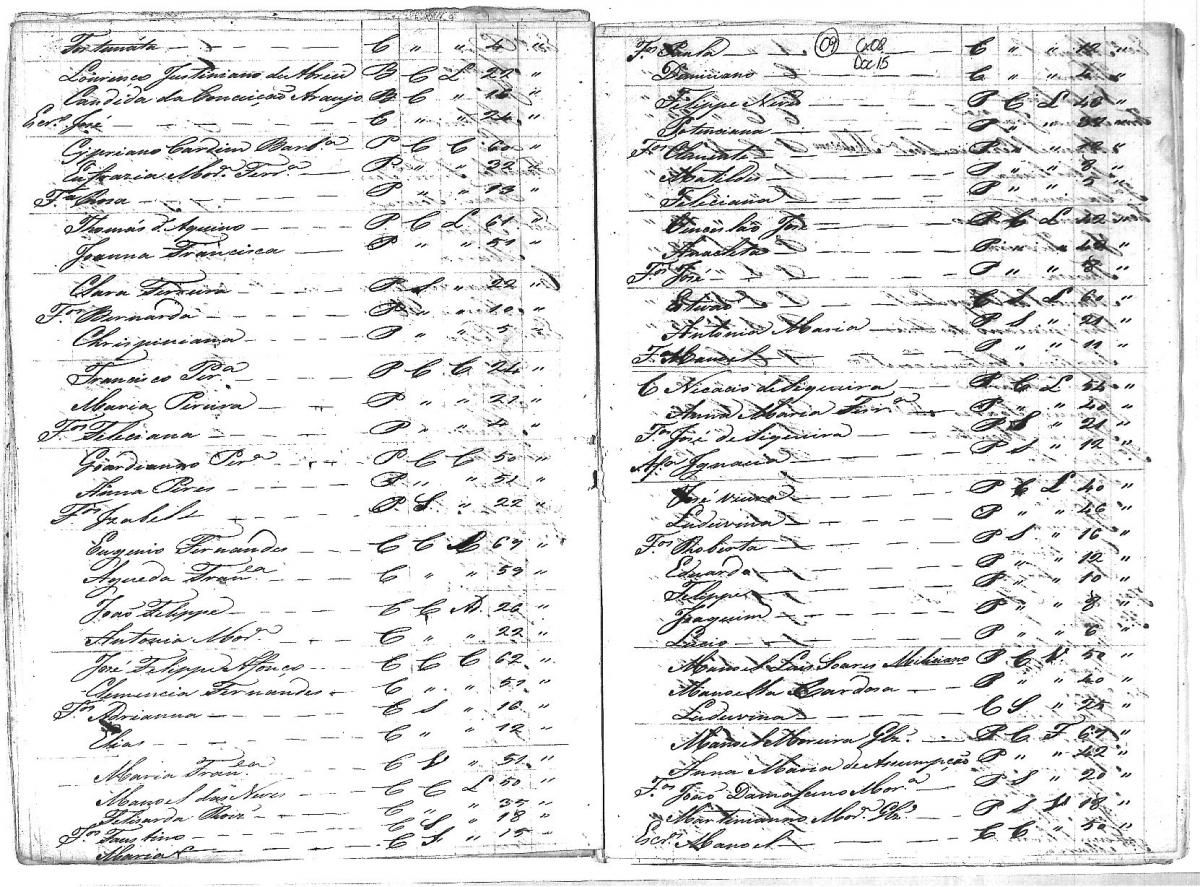 Fortunáta — C " " 4 "
Lourenco Justiniano de Abreu B C L 27 "
Candida da Conceicão Araujo B C " 18 "
Escr.º José C " 24 "
Cypriano Cardim Barb.ª P C C 60 "
Eufrazia Mor.ª Ferr.ª P " " 32 "
F.ª Rosa P " " 13 "
Thomás d'Aquino P C L 61 "
Joanna Francisca P " " 51 "
Clara Ferreira P S " 22 "
F.os Bernarda P " " 10 "
Chrispiniana P " 5 "
Francisco Per.ª P C C 24 "
Maria Pereira P " " 22 "
F.os Feliciana P " " 4 "
Per.ª P C C 50 "
Anna Pires P " " 51 "
F.os Izabel P S " 22 "
Eugenio Fernandes C C 69 "
Agueda Fran.ca C " " 59 "
João Felippe C C A 26 "
Antonia Mor.ª C " " 22 "
José Felippe Afonço C C C 62 "
Clemencia Fernandes C " " 51 "
F.os Adrianna C S " 16 "
Elias C " " 12 "
Maria Fran.ca C V " 51 "
Manoel das Neves C C L 50 "
Felisarda Roiz C " " 35 "
F.os Faustino C S " 18 "
Maria C S " 15 "
09 Cx08
Doc15
F.os Paula C " " 12 "
Damiciano C " " "
Felippe Neri P C L 46 "
Potenciana P " " 32
F.os Clemente P " " 12
Matildes P " " 8 "
Feliciana P " "
José P C L 42 "
Anacleta P " " 40 "
F.os José P " " 8 "
Estevão C S L 60 "
Antonia Maria P S " 21 "
F.º Manoel P " " 11 "
C Nicacio de Siqueira P C L 54 "
Anna Maria Ferr.ª P " " 40 "
F.os José de Siqueira P S " 21 "
Ignacia P S " 12 "
José Vieira P C L 40 "
Luduvina P " " 46 "
F.os Roberta P S " 16 "
Eduarda P " " 12 "
Felippe P " " 10 "
Joaquim P " " 8 "
Lucio P " " 6 "
Manoel Luis Soares Miliciano P C V 50 "
Manoella Cardosa P " " 40 "
Luduvina C S " 24 "
Manoel Moreira P C F 67 "
Anna Maria de Assumpção P " " 42 "
F.os João Damasceno Mor.ª P S " 20 "
Martinianno Mor.ª P S 18 "
Escr.º Manoel C C " 50 "